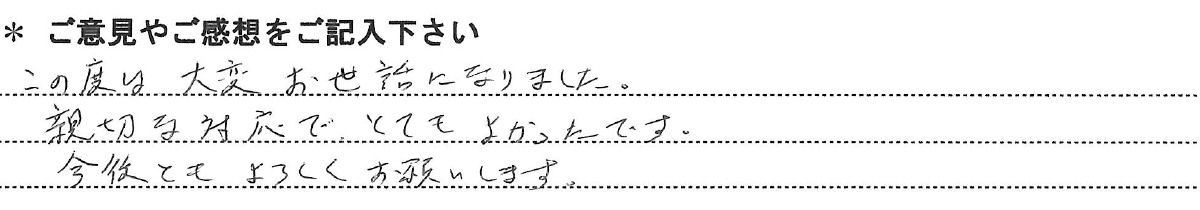 * ご意見やご感想をご記入下さい
この度は 大変 お世話になりました。
親切な対応で、とても よかったです。
今後とも よろしくお願いします。